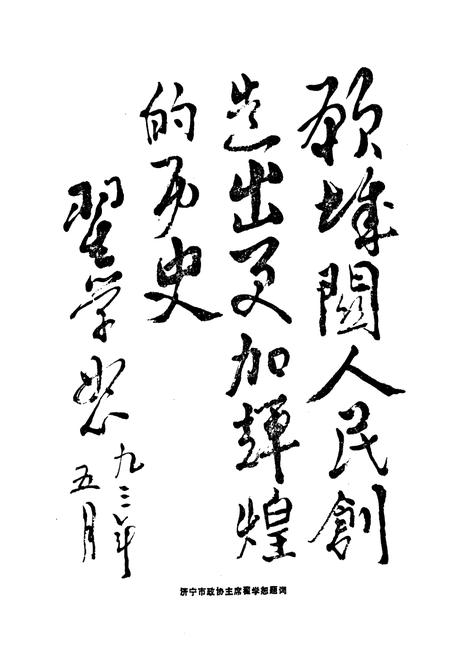 願城關人民創
造出更加輝煌
的历史
翟学恕
九三年
五月
济宁市政协主席翟学恕题词